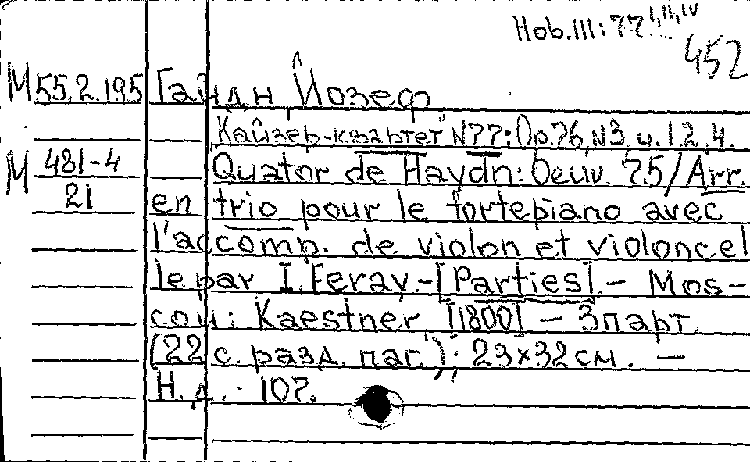 Hob.III:77 I,III,IV
452
М 55.2.195 Гайдн Йозеф
"Кайзер-квартет" N77: Op.76, N3, ч. 1. 2. 4.
М 481-4 Quator de Haydn: Oeuv 75/Arr.
21 en trio pour le fortepiano avec
l'accomp. de violon et violoncel
le par I. Feray.-[Parties].- Mos-
cou: Kaestner, [1800] - 3 парт.
(22 с. разд. паг.); 23×32 см. -
Н.д.: 107.